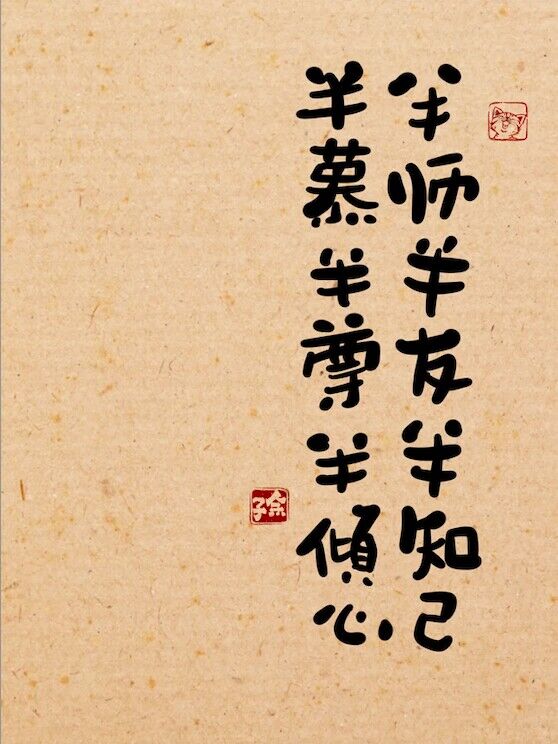 半师半友半知己
半慕半尊半傾心
余子